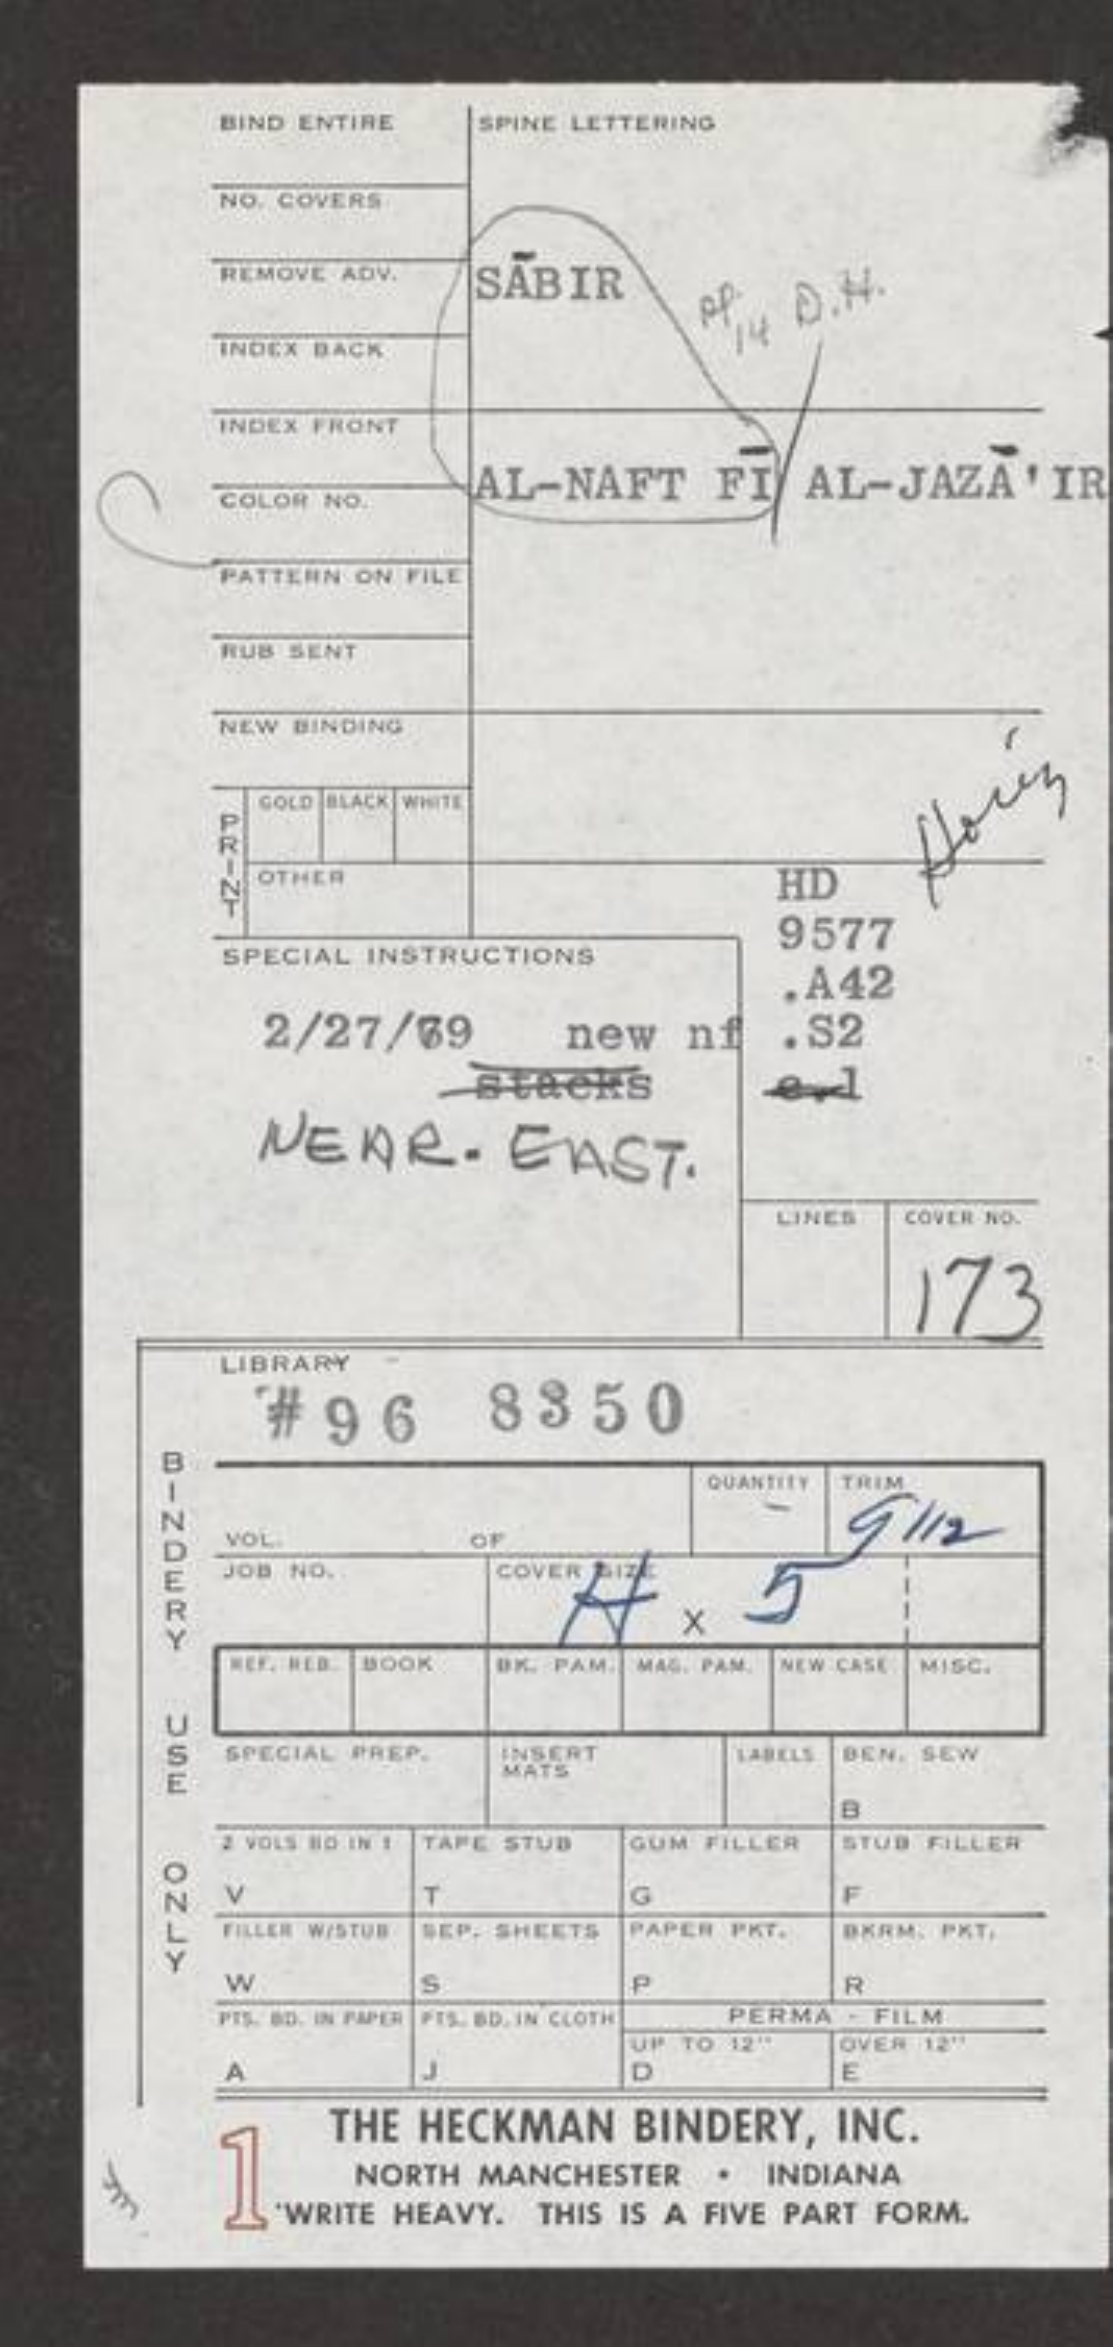 BIND ENTIRE
SPINE LETTERING
NO. COVERS
REMOVE ADV.
SĀBIR
14 D.H.
INDEX BACK
INDEX FRONT
AL-NAFT FĪ / AL-JAZĀ'IR
COLOR NO.
PATTERN ON FILE
RUB SENT
NEW BINDING
PRINT
GOLD BLACK WHITE
OTHER
HD
9577
.A42
.S2
c.1
SPECIAL INSTRUCTIONS
2/27/79 new nf
stacks
NEAR. EAST.
LINES
COVER NO.
173
LIBRARY
#96 8350
BINDERY USE ONLY
VOL. OF
QUANTITY
TRIM
9 1/2
JOB NO.
COVER SIZE
H x 5
REF. REB. BOOK BK. PAM. MAG. PAM. NEW CASE MISC.
SPECIAL PREP. INSERT MATS LABELS BEN. SEW
B
2 VOLS BD IN 1 TAPE STUB GUM FILLER STUB FILLER
V T G F
FILLER W/STUB SEP. SHEETS PAPER PKT. BKRM. PKT.
W S P R
PTS. BD. IN PAPER PTS. BD. IN CLOTH PERMA - FILM
UP TO 12" OVER 12"
A J D E
THE HECKMAN BINDERY, INC.
1 NORTH MANCHESTER • INDIANA
'WRITE HEAVY. THIS IS A FIVE PART FORM.